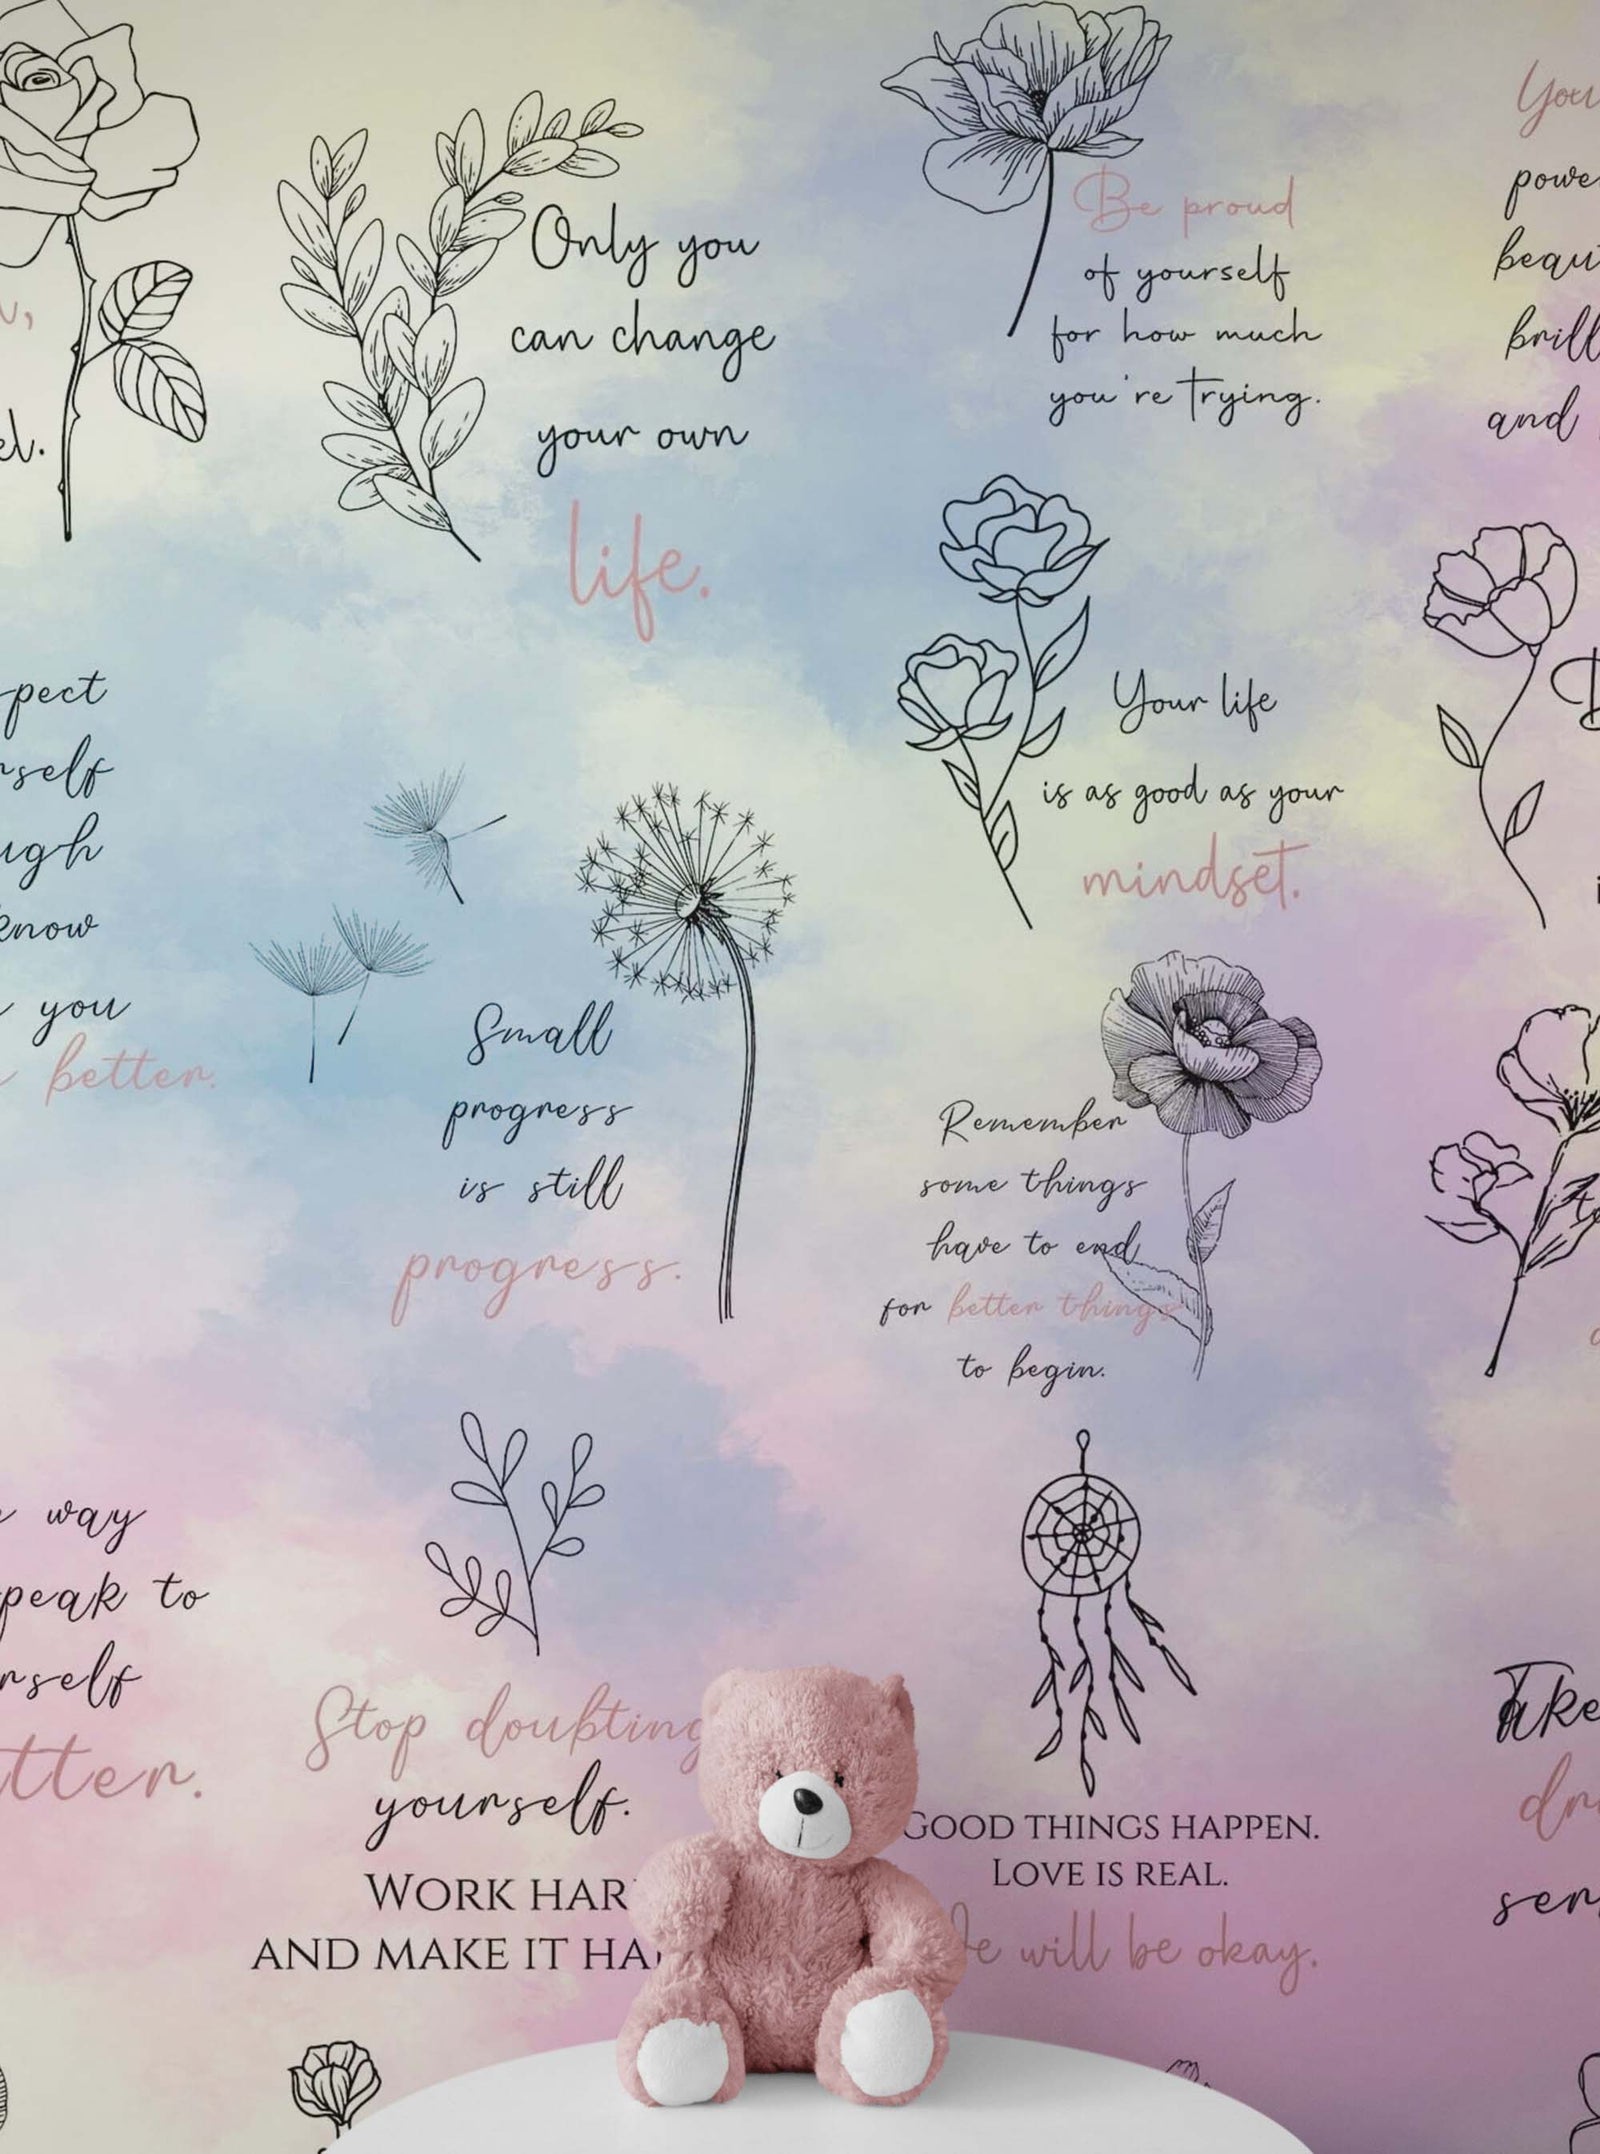 Only you
can change
your own
life.
Be proud
of yourself
for how much
you're trying.
and
know
you
better.
Your life
is as good as your
mindset.
Small
progress
is still
progress.
Remember
some things
have to end
for better things
to begin.
way
to
Stop doubting
yourself.
WORK
AND MAKE IT
GOOD THINGS HAPPEN.
LOVE IS REAL.
will be okay.